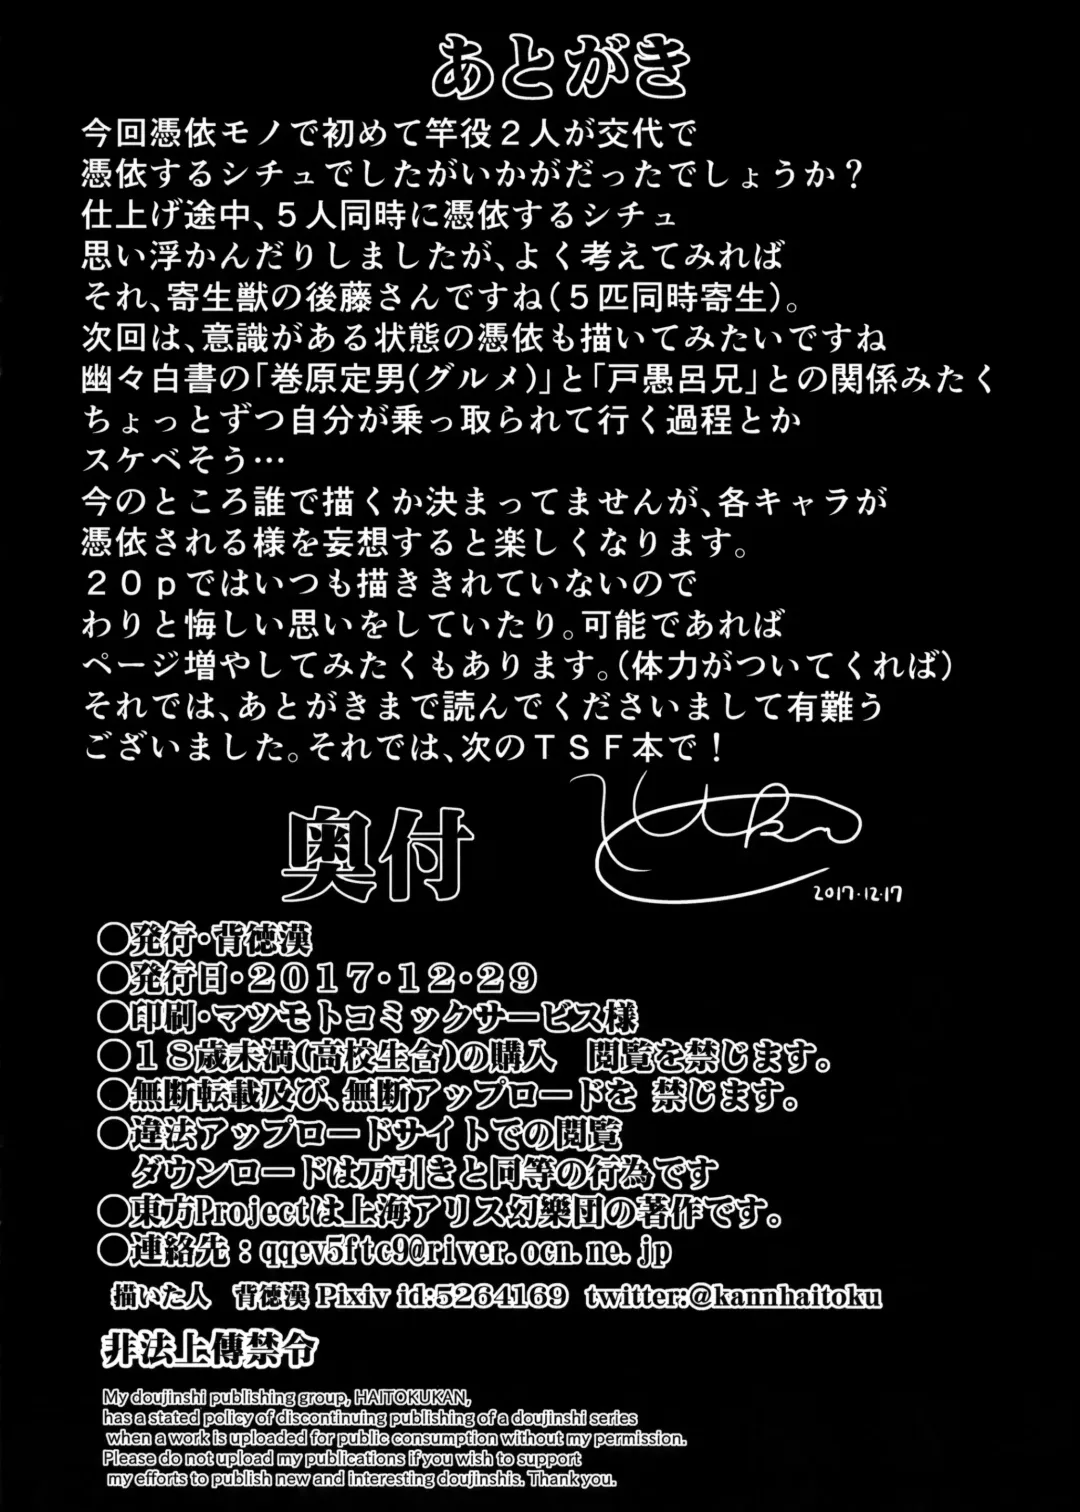 あとがき
今回憑依モノで初めて竿役２人が交代で
憑依するシチュでしたがいかがだったでしょうか？
仕上げ途中、５人同時に憑依するシチュ
思い浮かんだりしましたが、よく考えてみれば
それ、寄生獣の後藤さんですね（５匹同時寄生）。
次回は、意識がある状態の憑依も描いてみたいですね
幽々白書の「巻原定男(グルメ)」と「戸愚呂兄」との関係みたく
ちょっとずつ自分が乗っ取られて行く過程とか
スケベそう…
今のところ誰で描くか決まってませんが、各キャラが
憑依される様を妄想すると楽しくなります。
２０ｐではいつも描ききれていないので
わりと悔しい思いをしていたり。可能であれば
ページ増やしてみたくもあります。（体力がついてくれば）
それでは、あとがきまで読んでくださいまして有難う
ございました。それでは、次のＴＳＦ本で！
2017.12.17
奥付
○発行・背徳漢
○発行日・２０１７・１２・２９
○印刷・マツモトコミックサービス様
○１８歳未満(高校生含)の購入　閲覧を禁じます。
○無断転載及び、無断アップロードを 禁じます。
○違法アップロードサイトでの閲覧
ダウンロードは万引きと同等の行為です
○東方Projectは上海アリス幻樂団の著作です。
○連絡先：qqev5ftc9@river.ocn.ne.jp
描いた人　背徳漢 Pixiv id:5264169 twitter:@kannhaitoku
非法上傳禁令
My doujinshi publishing group, HAITOKUKAN,
has a stated policy of discontinuing publishing of a doujinshi series
when a work is uploaded for public consumption without my permission.
Please do not upload my publications if you wish to support
my efforts to publish new and interesting doujinshis. Thank you.